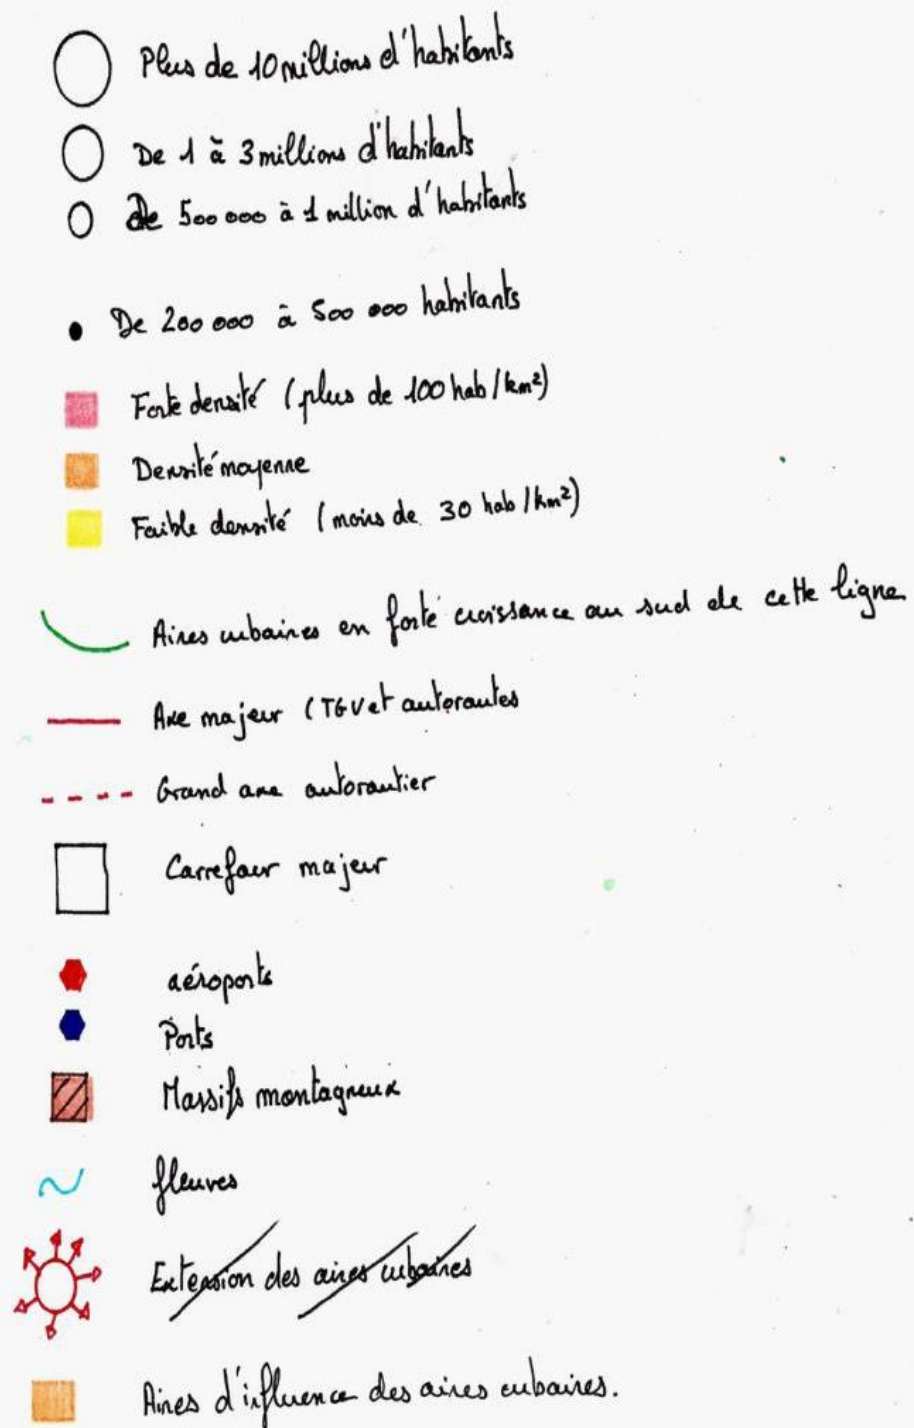 Plus de 10 millions d'habitants
De 1 à 3 millions d'habitants
de 500 000 à 1 million d'habitants
De 200 000 à 500 000 habitants
Forte densité (plus de 100 hab/km²)
Densité moyenne
Faible densité (moins de 30 hab/km²)
Aires urbaines en forte croissance au sud de cette ligne
Axe majeur (TGV et autoroutes
Grand axe autoroutier
Carrefour majeur
aéroports
Ports
Massifs montagneux
fleuves
Extension des aires urbaines
Aires d'influence des aires urbaines.